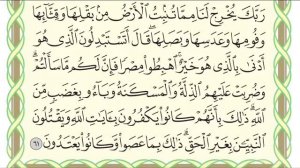 رَبَّكَ يُخْرِجْ لَنَا مِمَّا تُنۢبِتُ ٱلْأَرْضُ مِنۢ بَقْلِهَا وَقِثَّآئِهَا
وَفُومِهَا وَعَدَسِهَا وَبَصَلِهَا ۖ قَالَ أَتَسْتَبْدِلُونَ ٱلَّذِى هُوَ
أَدْنَىٰ بِٱلَّذِى هُوَ خَيْرٌ ۚ ٱهْبِطُوا۟ مِصْرًا فَإِنَّ لَكُم مَّا سَأَلْتُمْ ۗ
وَضُرِبَتْ عَلَيْهِمُ ٱلذِّلَّةُ وَٱلْمَسْكَنَةُ وَبَآءُو بِغَضَبٍ مِّنَ
ٱللَّهِ ۗ ذَٰلِكَ بِأَنَّهُمْ كَانُوا۟ يَكْفُرُونَ بِـَٔايَٰتِ ٱللَّهِ وَيَقْتُلُونَ
ٱلنَّبِيِّـۧنَ بِغَيْرِ ٱلْحَقِّ ۗ ذَٰلِكَ بِمَا عَصَوا۟ وَّكَانُوا۟ يَعْتَدُونَ ٦١